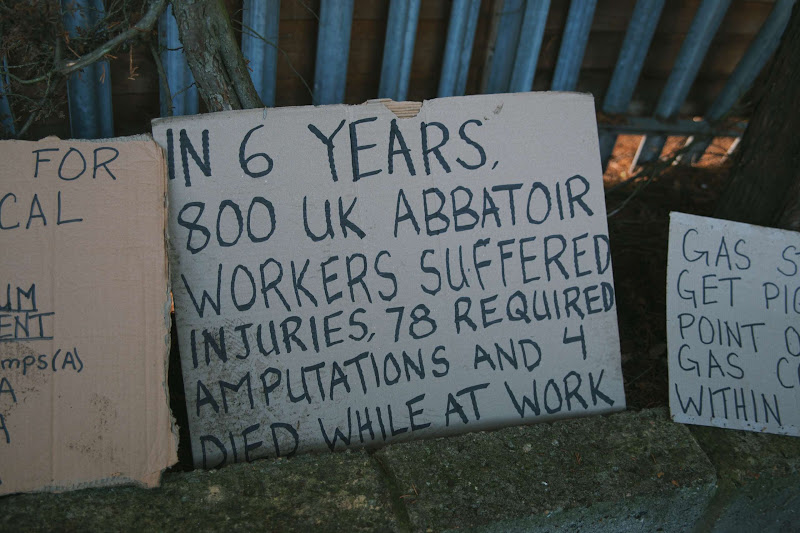 FOR
CAL
UM
ENT
mps(A)
A
A
IN 6 YEARS,
800 UK ABBATOIR
WORKERS SUFFERED
INJURIES, 78 REQUIRED
AMPUTATIONS AND 4
DIED WHILE AT WORK
GAS S
GET PIG
POINT O
GAS C
WITHIN